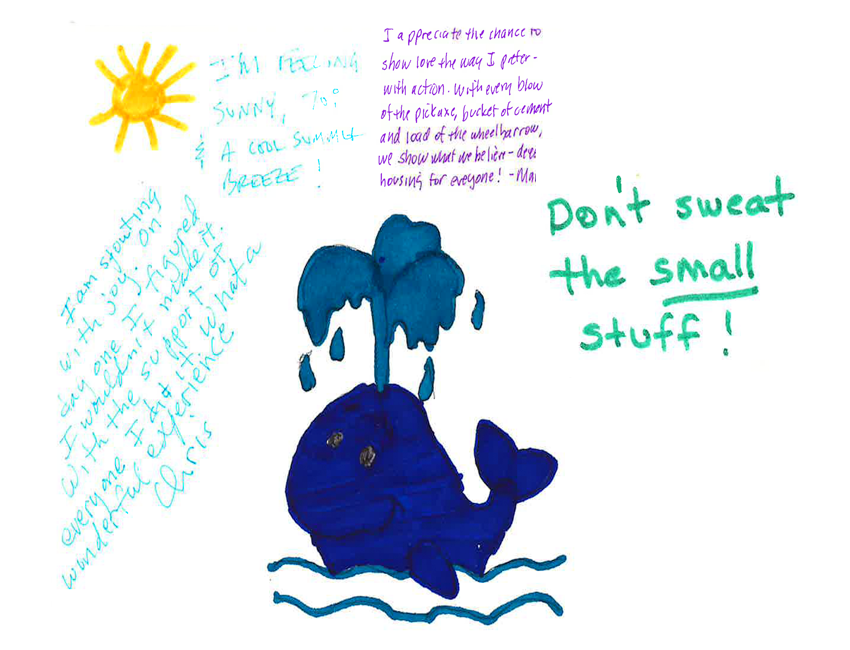 I'M FEELING
SUNNY, 70°
& A COOL SUMMER
BREEZE!
I appreciate the chance to
show love the way I prefer-
with action. With every blow
of the pickaxe, bucket of cement
and load of the wheelbarrow,
we show what we believe-
housing for everyone!
Don't sweat
the small
stuff!
I am spouting
with joy. On
day one I figured
I wouldn't make it.
With the support of
everyone I did it. What a
wonderful experience
Chris